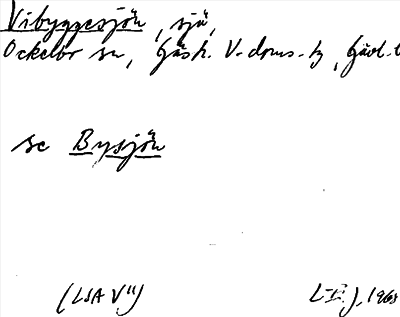 Vibyggesjön, sjö,
Ockelbo sn, Gästr. V-doms-tg, Gävl.
se Bysjön
(LSA V11) 1965